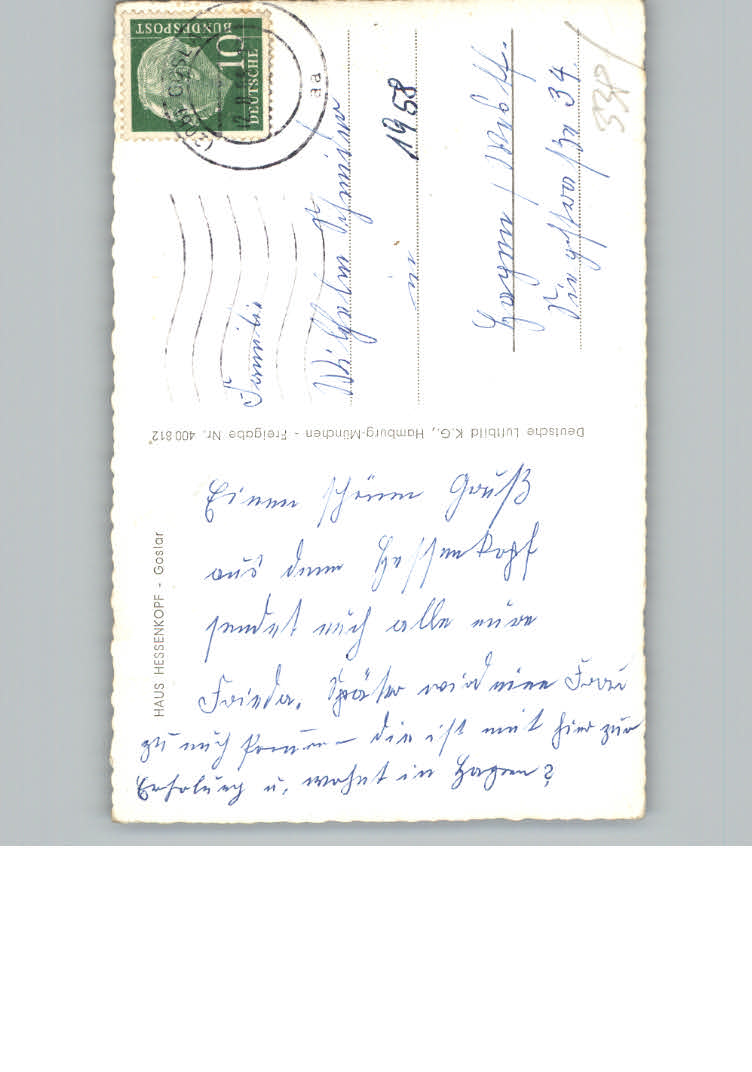 HAUS HESSENKOPF - Goslar
Einen schönen Gruß
aus dem Hessenkopf
sendet euch alle eure
Frieda. Später wird eine Frau
zu euch kommen die ist mit hier zur
Erholung u. wohnt in Hagen?
Deutsche Luftbild K.G., Hamburg-München - Freigabe Nr. 400812
DEUTSCHE
BUNDESPOST
10
aa
Familie
Wilhelm
1958
in
Hagen / Westf.
34